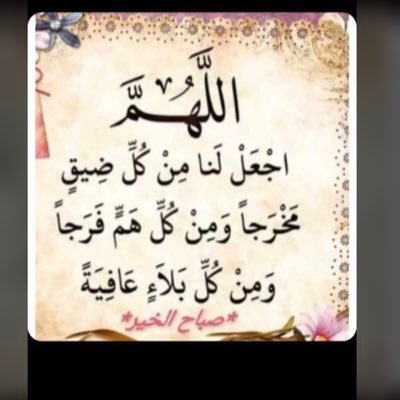 اللَّهُمَّ
اجْعَلْ لَنا مِنْ كُلِّ ضِيقٍ
مَخْرَجاً وَمِنْ كُلِّ هَمٍّ فَرَجاً
وَمِنْ كُلِّ بَلاَءٍ عَافِيَةً
*صباح الخير*